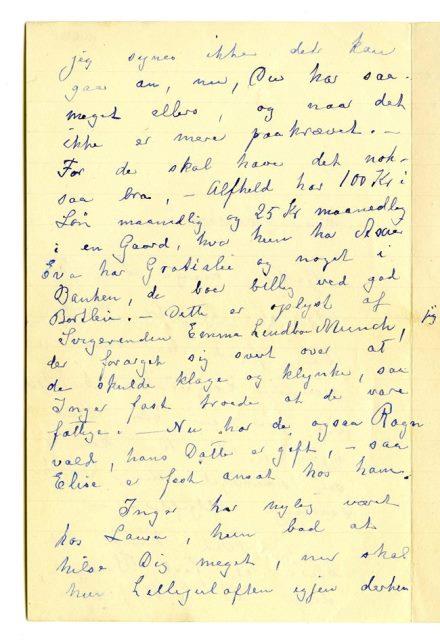 jeg synes ikke det kan
gaa an, nu, Du har saa
meget ellers, og naar det
ikke er mere paakrævet. —
For de skal have det nok
saa bra, — Alfhild har 100 Kr i
Løn maanedlig og 25 Kr maanedlig
i en Gaard, hvor hun har
Eva har Gratiale og noget i
Banken, de bor billig ved god
— Dette er oplyst af
Svigerinden Emma Lindboe Munch,
der forarget sig svert over at
de skulde klage og klynke, saa
Inger fast troede at de vare
fattige. — Nu har de ogsaa Ragn
vald, hans Datter er gift, — saa
Elise er fast ansat hos ham.
Inger har nylig været
hos Laura, hun bad at
hilse Dig meget, nu skal
hun Lillejulaften igjen derhen
jeg